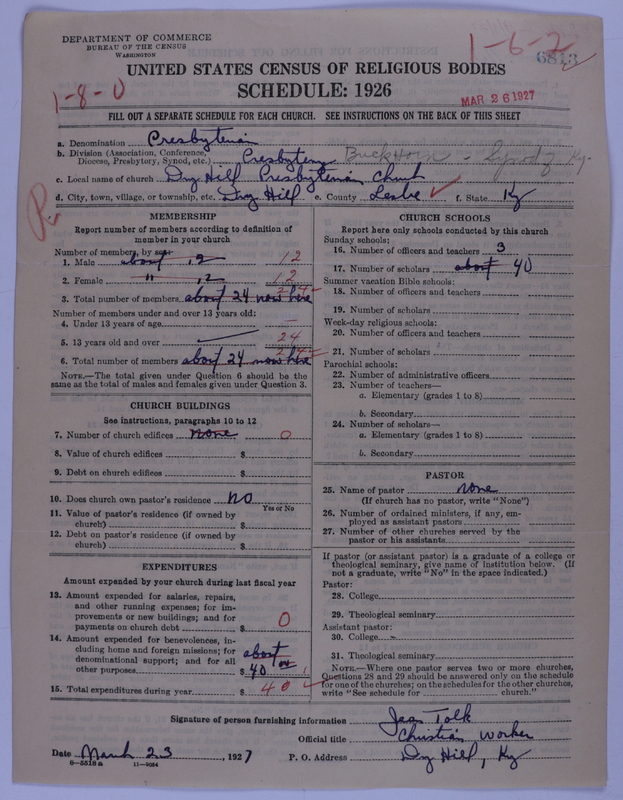 DEPARTMENT OF COMMERCE
BUREAU OF THE CENSUS
WASHINGTON
1-6-2
6813
UNITED STATES CENSUS OF RELIGIOUS BODIES
SCHEDULE: 1926
1-8-0
MAR 26 1927
FILL OUT A SEPARATE SCHEDULE FOR EACH CHURCH. SEE INSTRUCTIONS ON THE BACK OF THIS SHEET
a. Denomination Presbyterian
b. Division (Association, Conference, Diocese, Presbytery, Synod, etc.) Presbytery Buckhorn - Synod Ky.
c. Local name of church Dry Hill Presbyterian Church
d. City, town, village, or township, etc. Dry Hill e. County Leslie f. State Ky
R
MEMBERSHIP
Report number of members according to definition of
member in your church
Number of members, by sex:
1. Male about 12 12
2. Female " 12 12
3. Total number of members about 24 now here 24
Number of members under and over 13 years old:
4. Under 13 years of age —
5. 13 years old and over 24
6. Total number of members about 24 now here 24
NOTE.—The total given under Question 6 should be the
same as the total of males and females given under Question 3.
CHURCH BUILDINGS
See instructions, paragraphs 10 to 12
7. Number of church edifices none 0
8. Value of church edifices $
9. Debt on church edifices $
10. Does church own pastor's residence no
Yes or No
11. Value of pastor's residence (if owned by
church) $
12. Debt on pastor's residence (if owned by
church) $
EXPENDITURES
Amount expended by your church during last fiscal year
13. Amount expended for salaries, repairs,
and other running expenses; for im-
provements or new buildings; and for
payments on church debt $ 0
14. Amount expended for benevolences, in-
cluding home and foreign missions; for
denominational support; and for all
other purposes $ about 40
15. Total expenditures during year $ 40
CHURCH SCHOOLS
Report here only schools conducted by this church
Sunday schools:
16. Number of officers and teachers 3
17. Number of scholars about 40
Summer vacation Bible schools:
18. Number of officers and teachers
19. Number of scholars
Week-day religious schools:
20. Number of officers and teachers
21. Number of scholars
Parochial schools:
22. Number of administrative officers
23. Number of teachers—
a. Elementary (grades 1 to 8)
b. Secondary
24. Number of scholars—
a. Elementary (grades 1 to 8)
b. Secondary
PASTOR
25. Name of pastor none
(If church has no pastor, write "None")
26. Number of ordained ministers, if any, em-
ployed as assistant pastors
27. Number of other churches served by the
pastor or his assistants
If pastor (or assistant pastor) is a graduate of a college or
theological seminary, give name of institution below. (If
not a graduate, write "No" in the space indicated.)
Pastor:
28. College
29. Theological seminary
Assistant pastor:
30. College
31. Theological seminary
NOTE.—Where one pastor serves two or more churches,
Questions 28 and 29 should be answered only on the schedule
for one of the churches; on the schedules for the other churches,
write "See schedule for church."
Signature of person furnishing information Jean Tolk
Official title Christian Worker
Date March 23, 1927 P. O. Address Dry Hill, Ky
8-5518a 11-9034